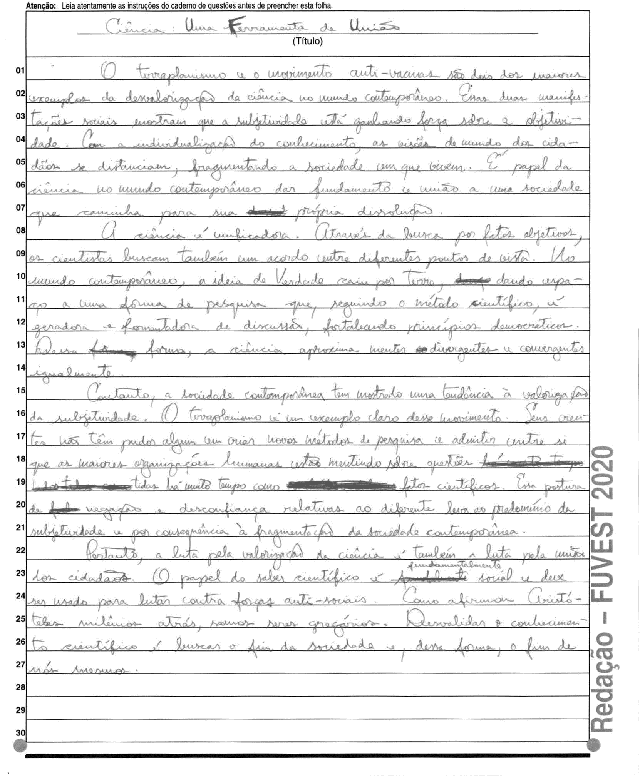 Atenção: Leia atentamente as instruções do caderno de questões antes de preencher esta folha.
Ciência: Uma Ferramenta de União
(Título)
01 O terraplanismo e o movimento anti-vacinas são dois dos maiores
02 exemplos da desvalorização da ciência no mundo contemporâneo. Essas duas manifes-
03 tações sociais mostram que a subjetividade está ganhando força sobre a objetivi-
04 dade. Com a individualização do conhecimento, as visões de mundo dos cida-
05 dãos se distanciam, fragmentando a sociedade em que vivem. É papel da
06 ciência no mundo contemporâneo dar fundamento e união a uma sociedade
07 que caminha para sua própria dissolução.
08 A ciência é unificadora. Através da busca por fatos objetivos,
09 os cientistas buscam também um acordo entre diferentes pontos de vista. No
10 mundo contemporâneo, a ideia de Verdade caiu por terra, dando espa-
11 ço a uma forma de pesquisa que, seguindo o método científico, é
12 geradora e fomentadora de discussão, fortalecendo princípios democráticos.
13 Dessa forma, a ciência aproxima mentes divergentes e convergentes
14 igualmente.
15 Contanto, a sociedade contemporânea tem mostrado uma tendência à valorização
16 da subjetividade. O terraplanismo é um exemplo claro desse movimento. Seus cren-
17 tes não têm pudor algum em criar novos métodos de pesquisa e admitir entre si
18 que as maiores organizações humanas estão mentindo sobre questões
19 tidas há muito tempo como fatos científicos. Essa postura
20 de negação e desconfiança relativas ao diferente leva ao predomínio da
21 subjetividade e por consequência à fragmentação da sociedade contemporânea.
22 Portanto, a luta pela valorização da ciência é também a luta pela união
23 dos cidadãos. O papel do saber científico é fundamentalmente social e deve
24 ser usado para lutar contra forças anti-sociais. Como afirmou Aristó-
25 teles milênios atrás, somos seres gregários. Desvalidar o conhecimen-
26 to científico é buscar o fim da sociedade e, dessa forma, o fim de
27 nós mesmos.
28
29
30
Redação – FUVEST 2020